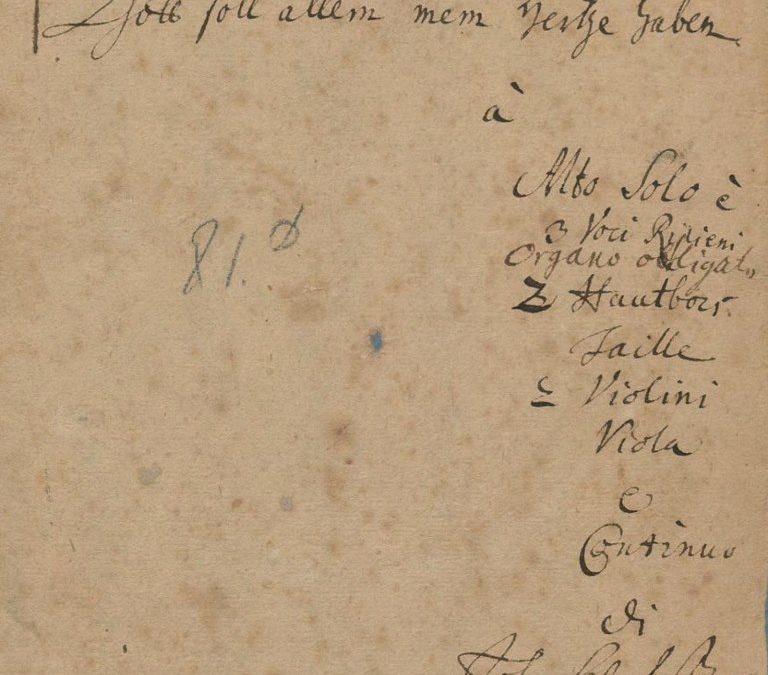 Gott soll allein mein Hertze haben.
à
Alto Solo è
3 Voci Ripieni
Organo obligato
2 Hautbois.
Taille
2 Violini
Viola
e
Continuo
di
81.